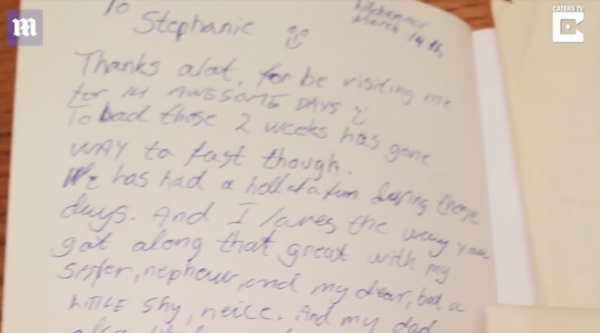 To
Stephanie
March 14th,
Thanks alat, for be visiting me
for 14 AWESOME DAYS
To bad those 2 weeks has gone
WAY to fast though.
We has had a hellotafun during these
days. And I loves the way you
got along that great with my
sister, nephew, and my dear, but a
little shy, neice. And my dad
CATERS TV
m